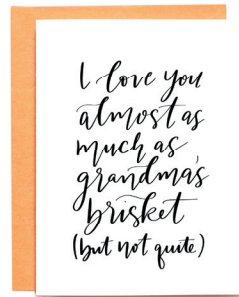 I love you
almost as
much as
grandma's
brisket
(but not quite)